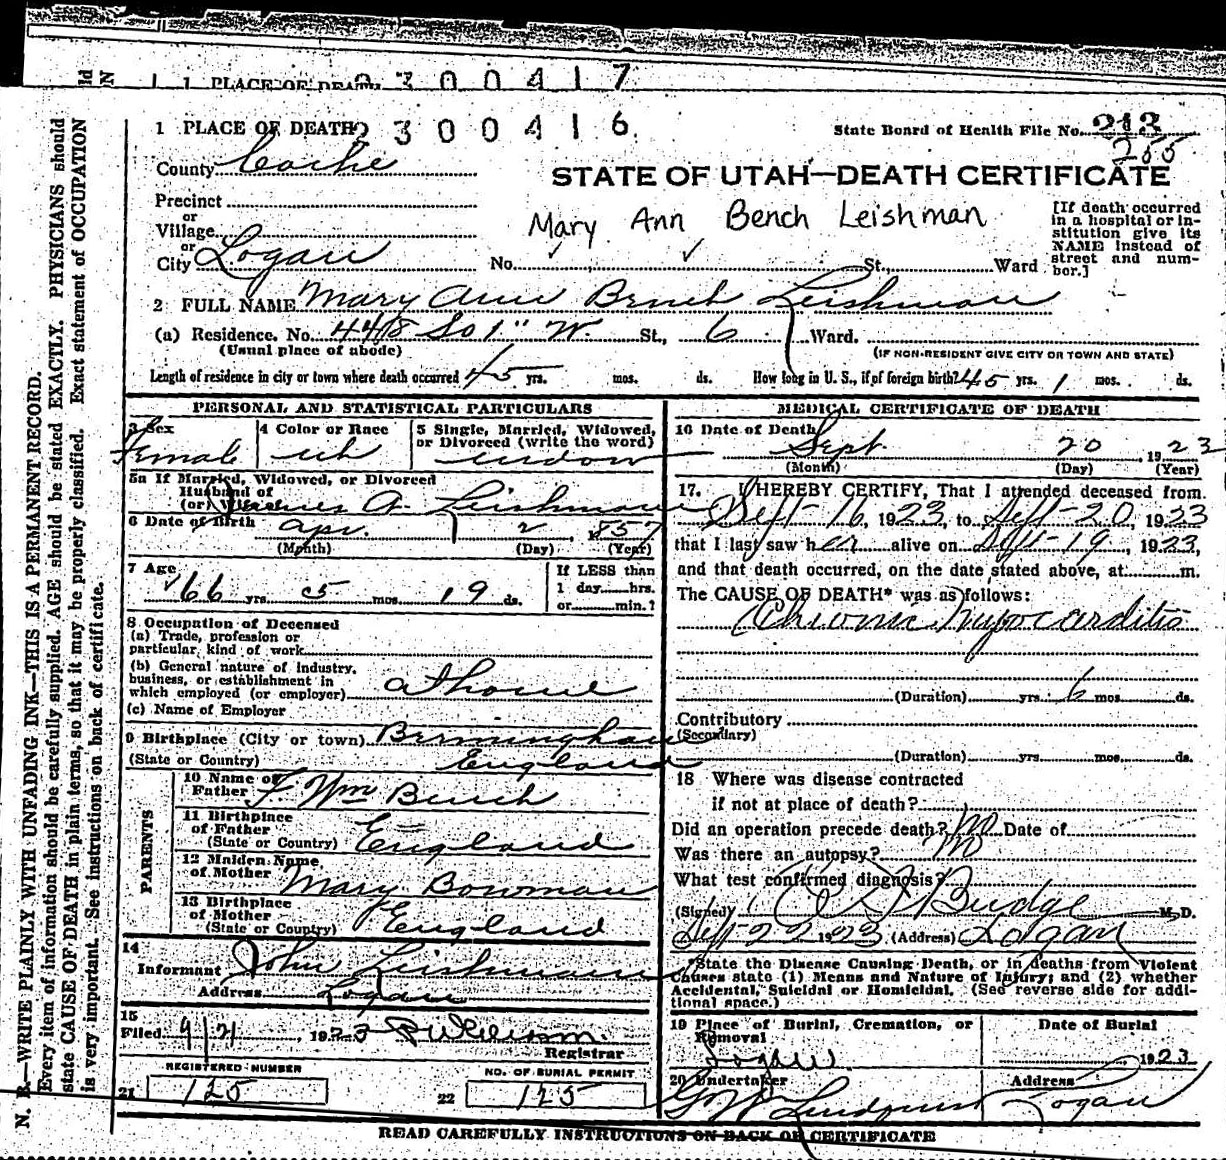 1 PLACE OF DEATH 300417
1 PLACE OF DEATH 300416
State Board of Health File No. 213
255
County Cache
STATE OF UTAH—DEATH CERTIFICATE
Precinct
or
Village
or
City Logan
Mary Ann Bench Leishman
[If death occurred
in a hospital or in-
stitution give its
NAME instead of
street and num-
ber.]
No. St., Ward
2 FULL NAME Mary Ann Bench Leishman
(a) Residence. No. 448 So 1" W. St., 6 Ward.
(Usual place of abode) (IF NON-RESIDENT GIVE CITY OR TOWN AND STATE)
Length of residence in city or town where death occurred 45 yrs. mos. ds. How long in U. S., if of foreign birth? 45 yrs. 1 mos. ds.
PERSONAL AND STATISTICAL PARTICULARS
3 Sex
Female
4 Color or Race
wh
5 Single, Married, Widowed,
or Divorced (write the word)
widow
5a If Married, Widowed, or Divorced
Husband of
(or) Wife A. Leishman
6 Date of Birth Apr. 2 1857
(Month) (Day) (Year)
7 Age
66 yrs. 5 mos. 19 ds.
If LESS than
1 day hrs.
or min.?
8 Occupation of Deceased
(a) Trade, profession or
particular, kind of work
(b) General nature of industry,
business, or establishment in
which employed (or employer) at home
(c) Name of Employer
9 Birthplace (City or town) Birmingham
(State or Country) England
PARENTS
10 Name of
Father Wm Bench
11 Birthplace
of Father
(State or Country) England
12 Maiden Name
of Mother Mary Bowman
13 Birthplace
of Mother
(State or Country) England
14
Informant John Leishman
Address Logan
15
Filed 9/21, 1923
Registrar
REGISTERED NUMBER
21 125
NO. OF BURIAL PERMIT
22 125
MEDICAL CERTIFICATE OF DEATH
16 Date of Death
Sept. 20, 1923
(Month) (Day) (Year)
17. I HEREBY CERTIFY, That I attended deceased from
Sept-16, 1923, to Sept-20, 1923
that I last saw her alive on Sept-19, 1923,
and that death occurred, on the date stated above, at m.
The CAUSE OF DEATH* was as follows:
Chronic Myocarditis
(Duration) yrs. 6 mos. ds.
Contributory
(Secondary)
(Duration) yrs. mos. ds.
18 Where was disease contracted
if not at place of death?
Did an operation precede death? no Date of
Was there an autopsy? no
What test confirmed diagnosis?
(Signed) Budge M.D.
Sept-22 1923 (Address) Logan
*State the Disease Causing Death, or in deaths from Violent
Causes state (1) Means and Nature of Injury; and (2) whether
Accidental, Suicidal or Homicidal. (See reverse side for addi-
tional space.)
19 Place of Burial, Cremation, or
Removal
Logan
Date of Burial
1923
20 Undertaker
Address
Logan
READ CAREFULLY INSTRUCTIONS ON BACK OF CERTIFICATE
N. B.—WRITE PLAINLY WITH UNFADING INK—THIS IS A PERMANENT RECORD.
Every item of information should be carefully supplied. AGE should be stated EXACTLY. PHYSICIANS should
state CAUSE OF DEATH in plain terms, so that it may be properly classified. Exact statement of OCCUPATION
is very important. See instructions on back of certificate.